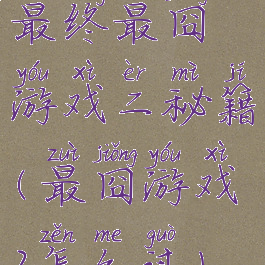 最终最囧
yóu xì èr mì jí
游戏二秘籍
zuì jiǒng yóu xì
(最囧游戏
zěn me guò
)怎么过!